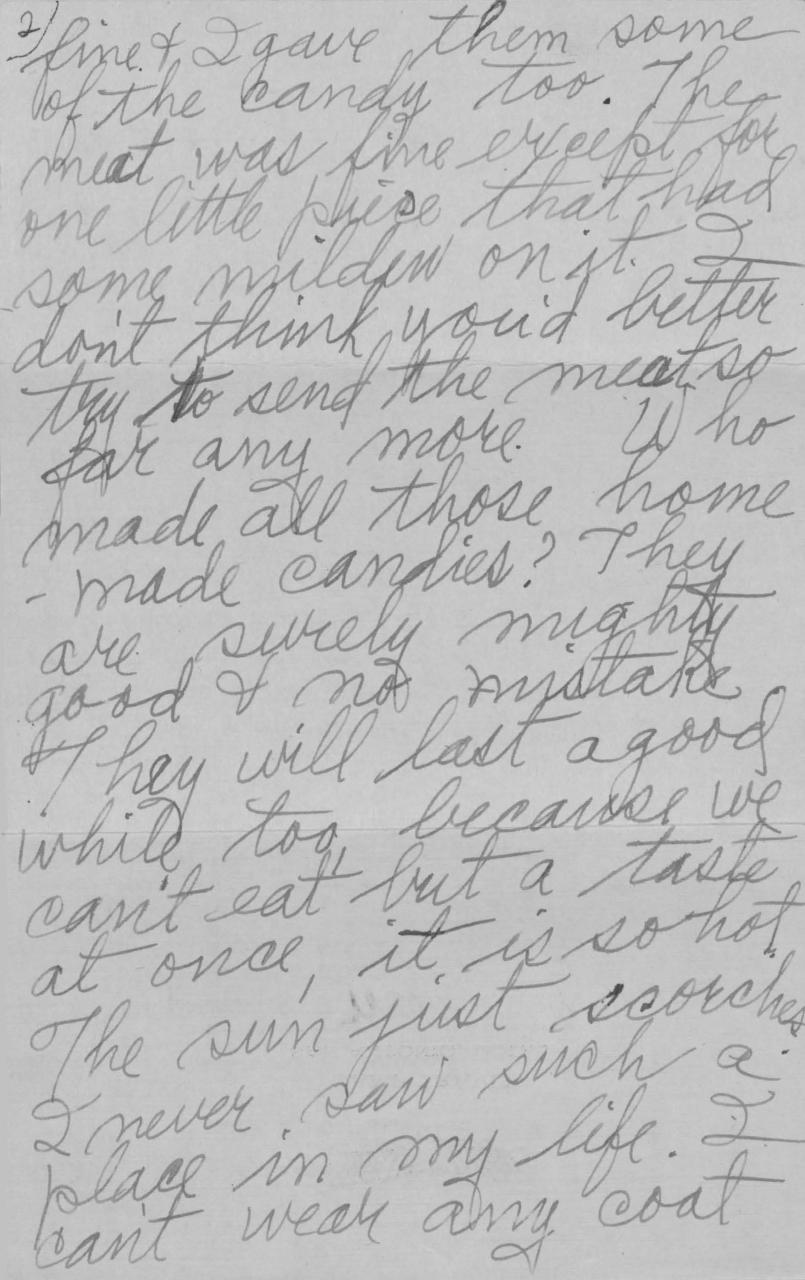 2)
fine & I gave them some
of the candy too. The
meat was fine except for
one little piece that had
some mildew on it. I
don't think you'd better
try to send the meat so
far any more. Who
made all those home
- made candies? They
are surely mighty
good & no mistake.
They will last a good
while too, because we
can't eat but a taste
at once, it is so hot.
The sun just scorches.
I never saw such a
place in my life. I
can't wear any coat